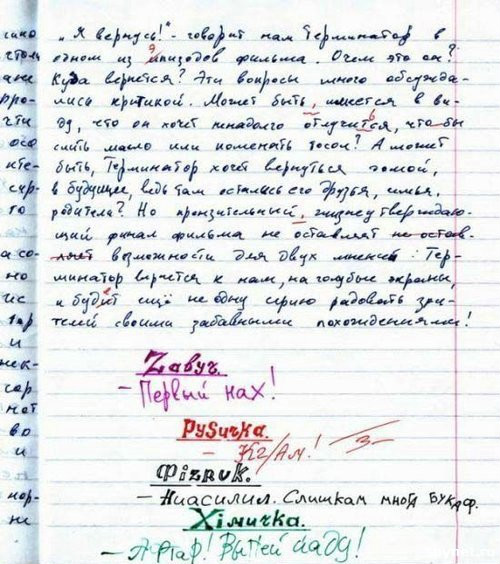 „Я вернусь!" - говорит нам Терминатор в
одном из эпизодов фильма. О чем это он?
Куда вернется? Эти вопросы много обсужда-
лись критикой. Может быть, имеется в ви-
ду, что он хочет ненадолго отлучится, что-бы
слить масло или поменять тосол? А может
быть, Терминатор хочет вернуться домой,
в будущее, ведь там остались его друзья, семья,
родители? Но пронзительный, жизнеутверждаю-
щий финал фильма не оставляет не остав-
ляет возможности для двух мнений: Тер-
минатор вернется к нам, на голубые экраны,
и будет ещё не одну серию радовать зри-
телей своими забавными похождениями!
Zавуч.
- Первый нах!
РуSичка.
- КГ/Ам! 3-
Фizруk.
- Ниасилил. Слишкам многа букаф.
Хiмичка.
- Афтар! Выпей йаду!